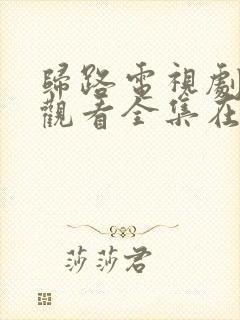 歸路電視劇
觀看全集在
莎莎君